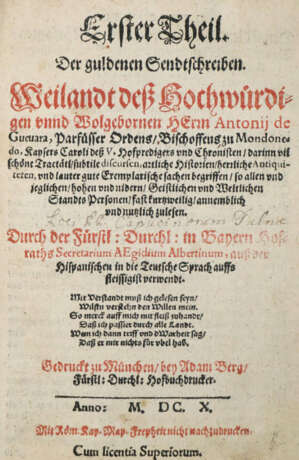 Erster Theil.
Der guldenen Sendtschreiben.
Weilandt deß Hochwürdi-
gen vnnd Wolgebornen HErrn Antonij de
Gueuara, Parfüsser Ordens/ Bischoffens zu Mondone-
do, Kaysers Caroli deß V. Hofpredigers vnd Chronisten/ darinn vil
schöne Tractätl/ subtile discursen, artliche Historien/ herrliche Antiqui-
teten, vnd lauter gute Exemplarische sachen begriffen/ so allen vnd
jeglichen/ hohen vnd nidern/ Geistlichen vnd Weltlichen
Stands Personen/ fast kurtzweilig/ annemblich
vnd nutzlich zulesen.
Loci Capucinorum
Durch der Fürstl: Durchl: in Bayern Hof-
raths Secretarium AEgidium Albertinum, auß der
Hispanischen in die Teutsche Sprach auffs
fleissigist verwendt.
Mit Verstandt muß ich gelesen seyn/
Wilstu verstehn den Willen mein.
So merck auff mich mit fleiß zuhandt/
Daß ich passier durch alle Landt.
Wan ich dann triff vnd d'Warheit sag/
Daß er mir nichts für vbel hab.
Gedruckt zu München/ bey Adam Berg/
Fürstl: Durchl: Hofbuchdrucker.
Anno: M. DC. X.
Mit Röm. Kay. May. Freyheit nicht nachzudrucken.
Cum licentia Superiorum.